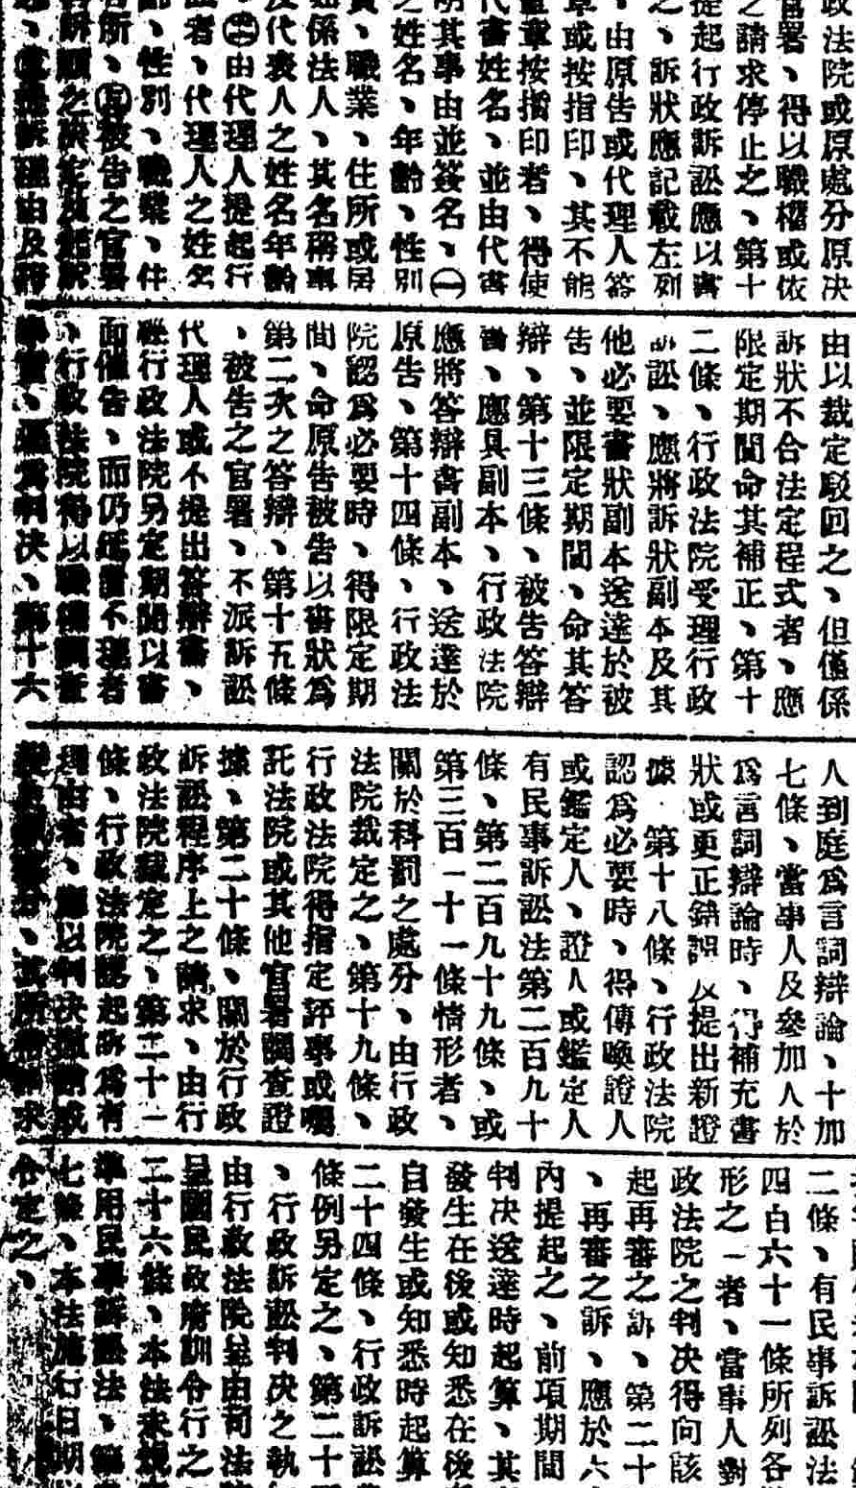 政法院或原處分原決
官署、得以職權或依
之請求停止之、第十
提起行政訴訟應以書
之、訴狀應記載左列
、由原告或代理人簽
章或按指印、其不能
蓋章按指印者、得使
代書姓名、並由代書
明其事由並簽名、㊀
之姓名、年齡、性別
、職業、住所或居
如係法人、其名稱事
及代表人之姓名年齡
、㊁由代理人提起行
者、代理人之姓名
、性別、職業、住
所、㊂被告之官署
訴願之決定及
由以裁定駁回之、但僅係
訴狀不合法定程式者、應
限定期間命其補正、第十
二條、行政法院受理行政
訴訟、應將訴狀副本及其
他必要書狀副本送達於被
告、並限定期間、命其答
辯、第十三條、被告答辯
書、應具副本、行政法院
應將答辯書副本、送達於
原告、第十四條、行政法
院認爲必要時、得限定期
間、命原告被告以書狀爲
第二次之答辯、第十五條
、被告之官署、不派訴訟
代理人或不提出答辯書、
經行政法院另定期間以書
面催告、而仍延置不理者
、行政法院得以職權調查
事實、逕爲判決、第十六
人到庭爲言詞辯論、十加
七條、當事人及參加人於
爲言詞辯論時、得補充書
狀或更正錯誤及提出新證
據 第十八條、行政法院
認爲必要時、得傳喚證人
或鑑定人、證人或鑑定人
有民事訴訟法第二百九十
條、第二百九十九條、或
第三百一十一條情形者、
關於科罰之處分、由行政
法院裁定之、第十九條、
行政法院得指定評事或囑
託法院或其他官署調查證
據、第二十條、關於行政
訴訟程序上之請求、由行
政法院裁定之、第二十一
條、行政法院認起訴爲有
理由者、應以判決撤銷或
二條、有民事訴訟法
四百六十一條所列各
形之一者、當事人對
政法院之判決得向該
起再審之訴、第二十
、再審之訴、應於六
內提起之、前項期間
判決送達時起算、其
發生在後或知悉在後
自發生或知悉時起算
二十四條、行政訴訟
條例另定之、第二十
、行政訴訟判決之執
由行政法院呈由司法
呈國民政府訓令行之
二十六條、本法未規
準用民事訴訟法、第
七條、本法施行日期
令定之、